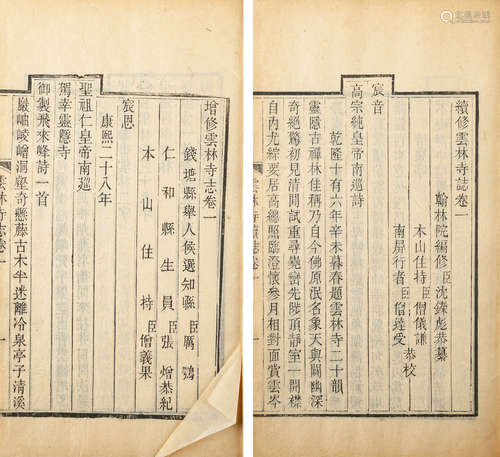 續修雲林寺誌卷一
翰林院編修臣沈鎔彪恭纂
本山住持臣僧儀謙
南屏行者臣僧達受 恭校
宸音
高宗純皇帝南巡詩
乾隆十有六年辛未暮春題雲林寺二十韻
靈隱古禪林佳稱乃自今佛原泯名象天與闢幽深
奇絕驚初見清閒試重尋堯巒先陟頂靜室一開襟
自內尤綜要居高總照臨澄懷參月相對面賞雲岑
增修雲林寺志卷一
錢塘縣舉人候選知縣臣厲鶚
仁和縣生員臣張增恭紀
本山住持臣僧義果
宸恩
康熙二十八年
聖祖仁皇帝南巡
駕幸靈隱寺
御製飛來峰詩一首
巖岫崚嶒洞壑奇懸藤古木半迷離冷泉亭子清溪
雲林寺志卷一